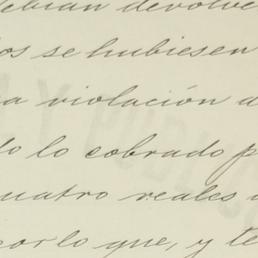 debían devolve
os se hubiesen
a violación d
do lo cobrado p
cuatro reales
por lo que, y te